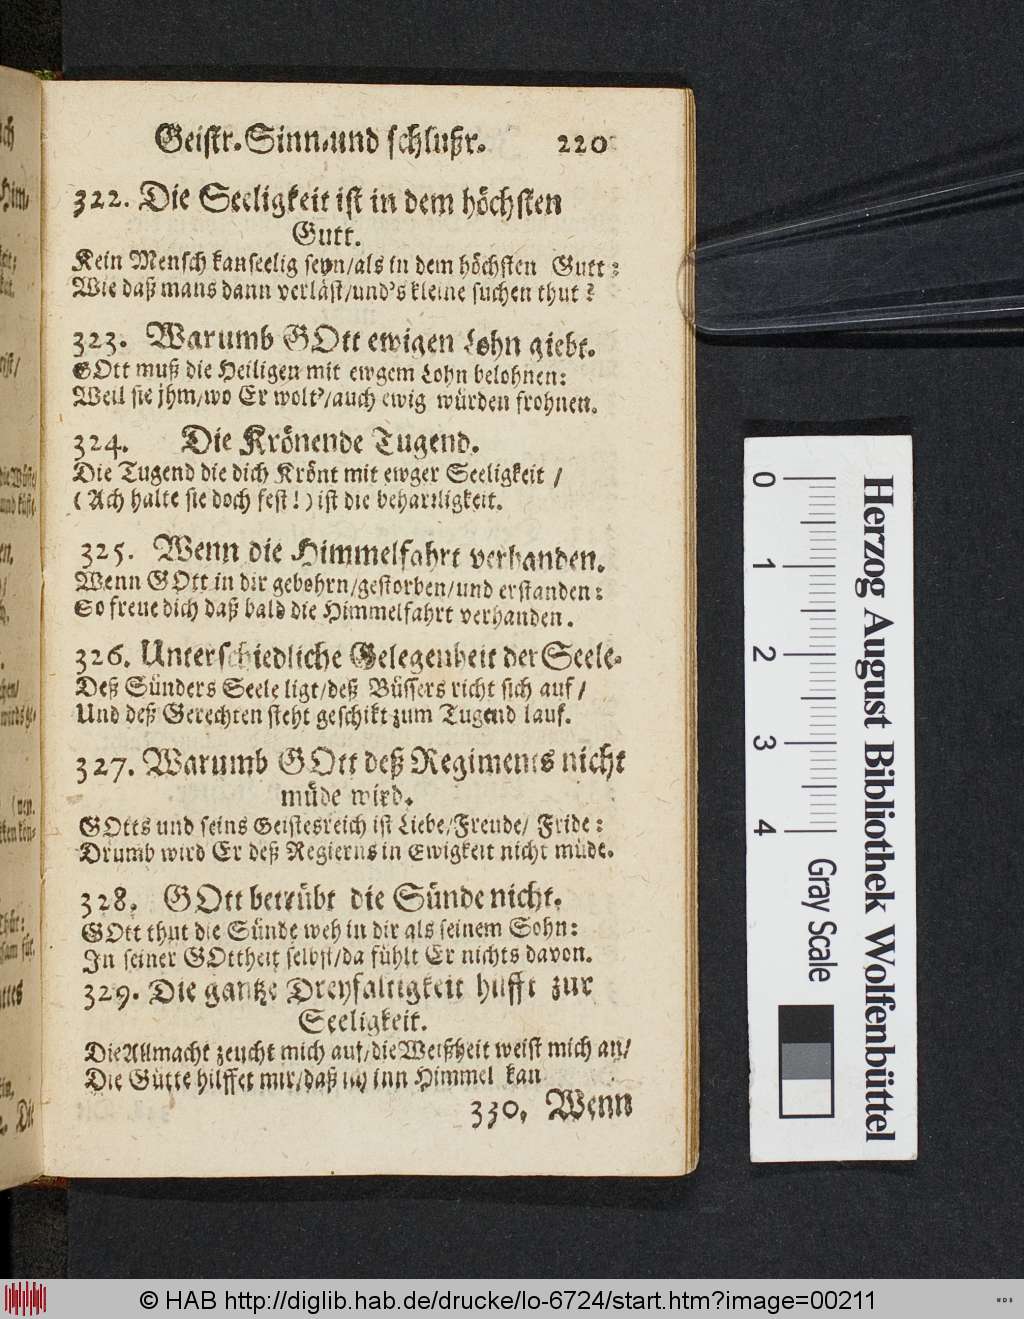 Geistr. Sinn-und schlußr. 220
322. Die Seeligkeit ist in dem höchsten
Gutt.
Kein Mensch kan seelig seyn/als in dem höchsten Gutt:
Wie daß mans dann verläst/und's kleine suchen thut?
323. Warumb GOtt ewigen Lohn giebt.
GOtt muß die Heiligen mit ewgem Lohn belohnen:
Weil sie jhm/wo Er wolt'/auch ewig würden frohnen.
324. Die Krönende Tugend.
Die Tugend die dich Krönt mit ewger Seeligkeit /
(Ach halte sie doch fest!) ist die beharrligkeit.
325. Wenn die Himmelfahrt verhanden.
Wenn GOtt in dir gebohrn/gestorben/und erstanden:
So freue dich daß bald die Himmelfahrt verhanden.
326. Unterschiedliche Gelegenheit der Seele.
Deß Sünders Seele ligt/deß Büssers richt sich auf/
Und deß Gerechten steht geschikt zum Tugend lauf.
327. Warumb GOtt deß Regiments nicht
müde wird.
GOtts und seins Geistesreich ist Liebe/Freude/ Fride:
Drumb wird Er deß Regierns in Ewigkeit nicht müde.
328. GOtt betrübt die Sünde nicht.
GOtt thut die Sünde weh in dir als seinem Sohn:
In seiner GOttheit selbst/da fühlt Er nichts davon.
329. Die gantze Dreyfaltigkeit hilfft zur
Seeligkeit.
Die Allmacht zeucht mich auf/die Weißheit weist mich an/
Die Gütte hilffet mir/daß ich inn Himmel kan
330. Wenn
0
1
2
3
4
Gray Scale
Herzog August Bibliothek Wolfenbüttel
© HAB http://diglib.hab.de/drucke/lo-6724/start.htm?image=00211